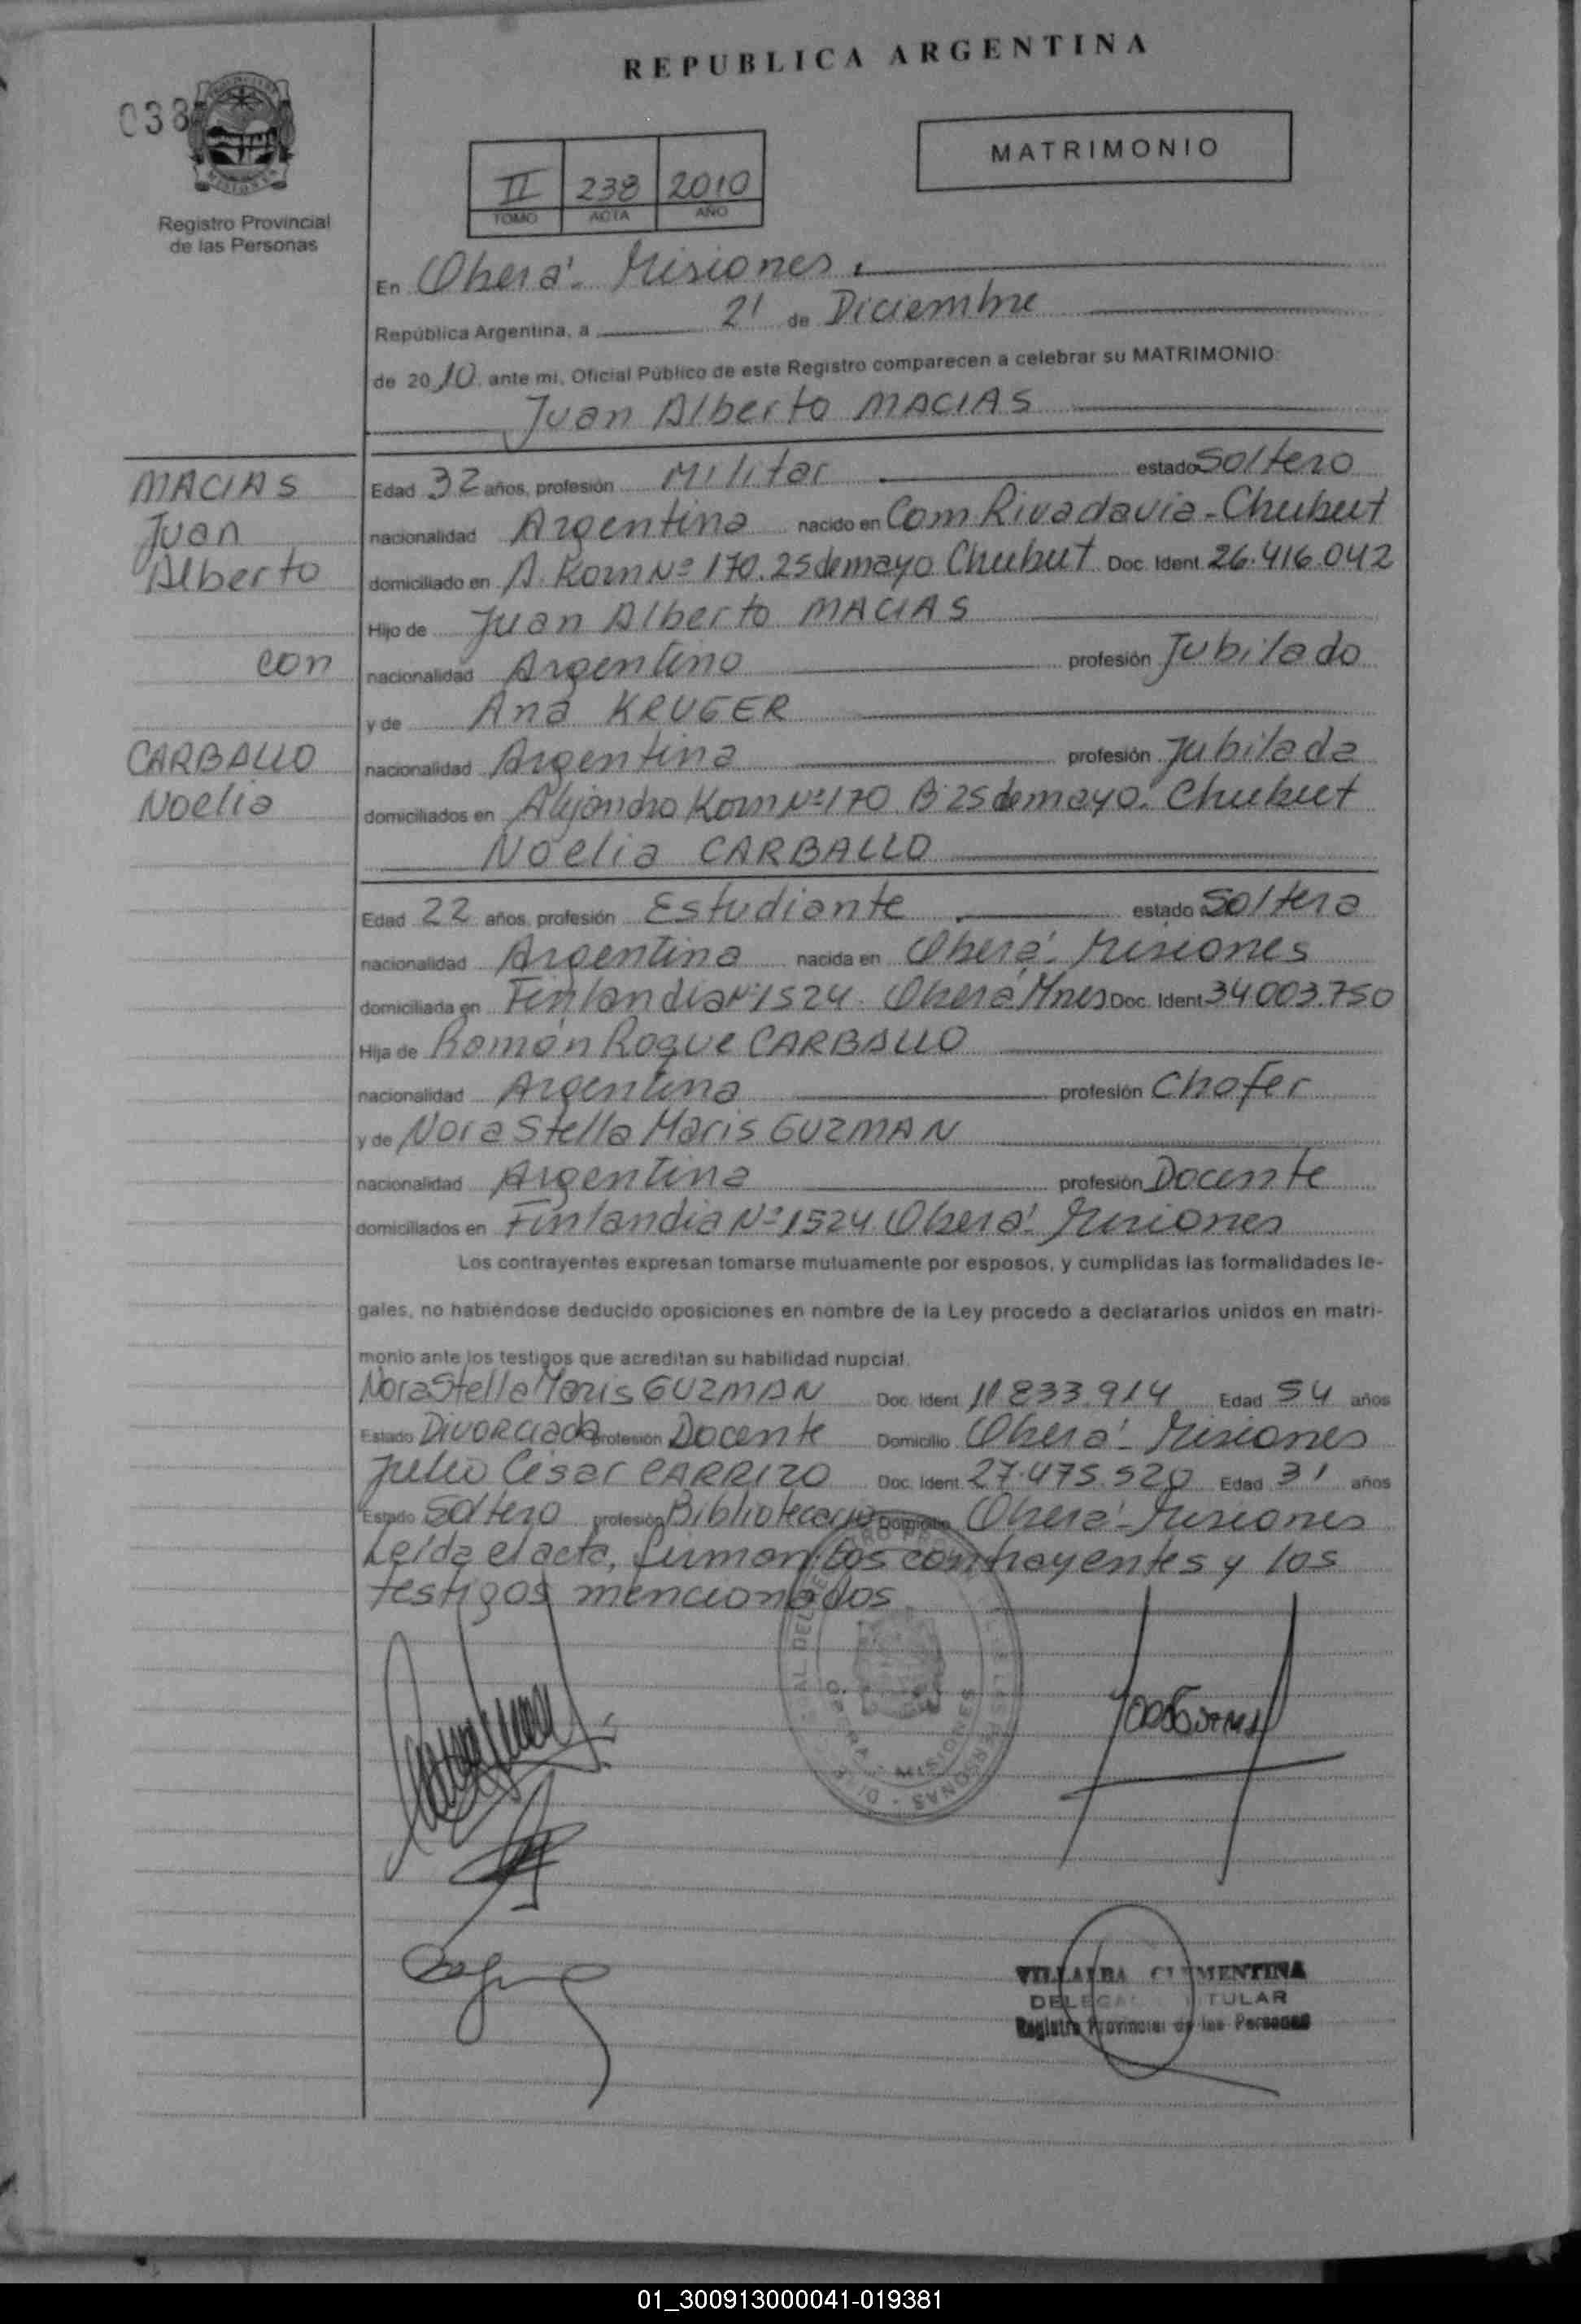 REPUBLICA ARGENTINA
038
MATRIMONIO
II 238 2010
TOMO ACTA AÑO
Registro Provincial
de las Personas
En Oberá - Misiones.
República Argentina, a 21 de Diciembre
de 2010 ante mi, Oficial Público de este Registro comparecen a celebrar su MATRIMONIO:
Juan Alberto MACIAS
MACIAS
Juan
Alberto
con
CARBALLO
Noelia
Edad 32 años, profesión Militar estado Soltero
nacionalidad Argentina nacido en Com Rivadavia - Chubut
domiciliado en A. Korn Nº 170. 25 de mayo Chubut Doc. Ident. 26.416.042
Hijo de Juan Alberto MACIAS
nacionalidad Argentino profesión Jubilado
y de Ana KRUGER
nacionalidad Argentina profesión Jubilada
domiciliados en Alejandro Korn Nº 170 B. 25 de mayo. Chubut
Noelia CARBALLO
Edad 22 años, profesión Estudiante estado Soltera
nacionalidad Argentina nacida en Oberá - Misiones
domiciliada en Finlandia Nº 1524. Oberá, Mnes Doc. Ident. 34.003.750
Hija de Ramón Roque CARBALLO
nacionalidad Argentina profesión Chofer
y de Nora Stella Maris GUZMAN
nacionalidad Argentina profesión Docente
domiciliados en Finlandia Nº 1524 Oberá - Misiones
Los contrayentes expresan tomarse mutuamente por esposos, y cumplidas las formalidades le-
gales, no habiéndose deducido oposiciones en nombre de la Ley procedo a declararlos unidos en matri-
monio ante los testigos que acreditan su habilidad nupcial.
Nora Stella Maris GUZMAN Doc. Ident. 11.833.914 Edad 54 años
Estado Divorciada profesión Docente Domicilio Oberá - Misiones
Julio César CARRIZO Doc. Ident. 27.475.520 Edad 31 años
Estado Soltero profesión Bibliotecario Domicilio Oberá - Misiones
Leída el acta, firman los contrayentes y los
testigos mencionados
OBERA - MISIONES
VILLALBA CLEMENTINA
DELEGADA TITULAR
Registro Provincial de las Personas
01_300913000041-019381